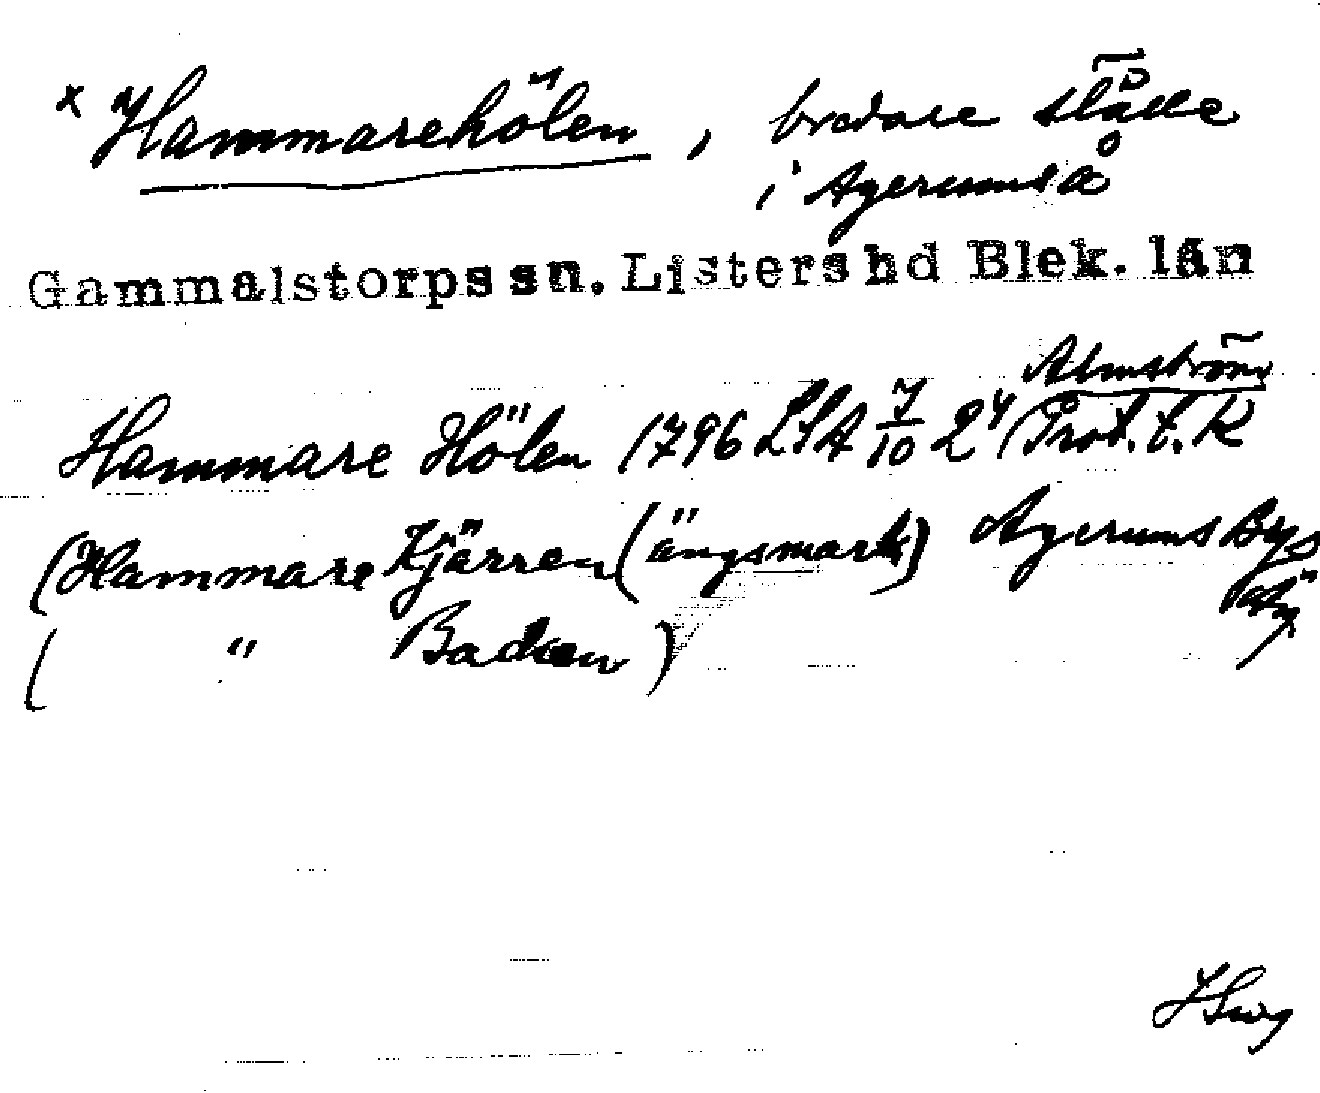 x Hammarehölen, bredare ställe
i Agerums å
Gammalstorps sn. Listers hd Blek. län
Almström
Hammare Hölen 1796 LSA 7/10 24 Prot. t. K
(Hammare Kjärren (ängsmark) Agerums Bys
( " Backen)